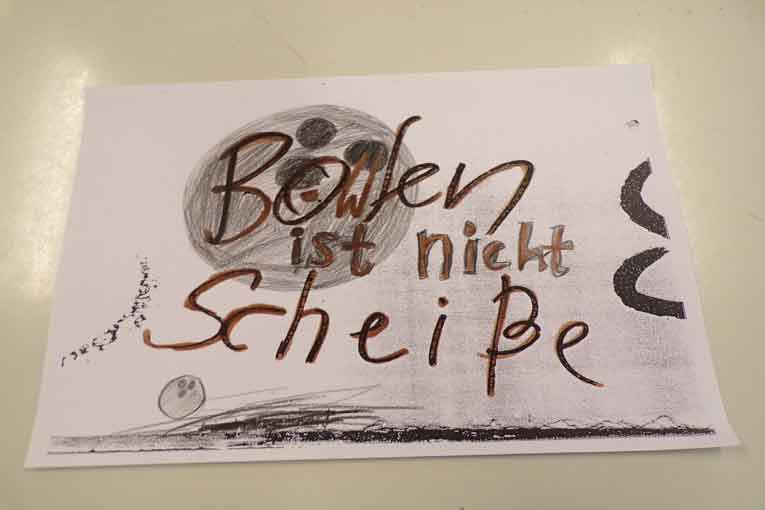 Bowlen
ist nicht
Scheiße